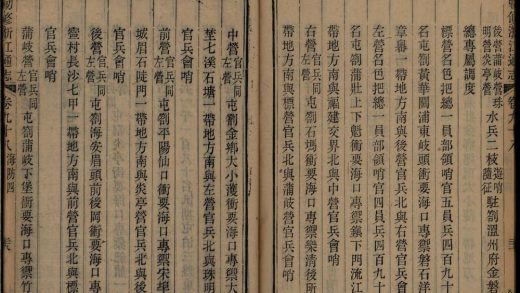 後營蒲岐營珠
明營炎亭營
水兵二枝遊哨
隨征
駐劄溫州府金磐
總專屬調度
標營名色把總一員部領哨官五員兵四百九十
名屯劄黃華關浦東岐頭衝要海口專禦磐石洋
章嶴一帶地方南與後營官兵北與右營官兵會哨
左營名色把總一員部領哨官四員兵四百九十
名屯劄蒲壯上下魁衝要海口專禦鎮下門流江
帶地方南與福建交界北與中營官兵會哨
右營官兵同左營屯劄石塘衝要海口專禦樂清後所
帶地方南與標營官兵北與蒲岐營官兵會哨
中營官兵同左營屯劄金鄉大小濩衝要海口專禦大
至七溪石塘一帶地方南與左營官兵北與珠明
官兵會哨
前營官兵同左營屯劄平陽仙口衝要海口專禦宋埠
城眉石陡門一帶地方南與炎亭營官兵北與
官兵會哨
後營官兵同左營屯劄海安眉頭前後岡衝要海口專禦
壹村長沙七甲一帶地方南與前營官兵北與標
官兵會哨
蒲岐營官兵同左營屯劄蒲岐下堡衝要海口專禦竹
敕修浙江通志 卷九十八 海防四